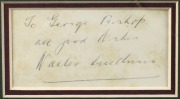 To George Bishop
all good wishes
Walter